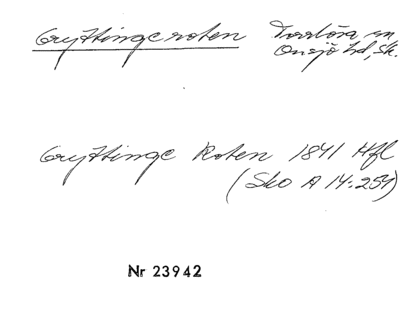 Gryttingeroten Torlösa sn
Onsjö hd, Sk.
Gryttinge Roten 1841 Hfl
(Sko A 14:254)
Nr 23942